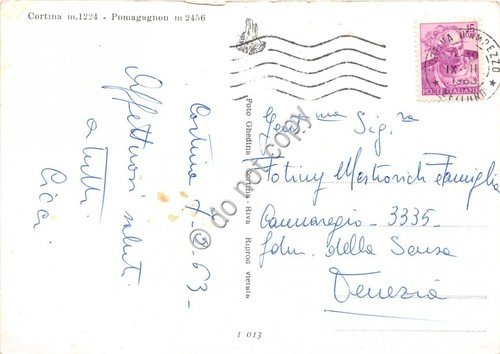 Cortina m.1224 - Pomagagnon m 2456
Cortina 7-2-63-
Affettuosi saluti
a tutti
Cicci
Foto Ghedina - Cortina - Riva Riprod vietata
1 013
POSTE ITALIANE
1963
Gent.ma Sig.ra
Fotiny Mestrovich Famiglia
Cannaregio - 3335-
Fdm. della Sensa
Venezia
do not copy